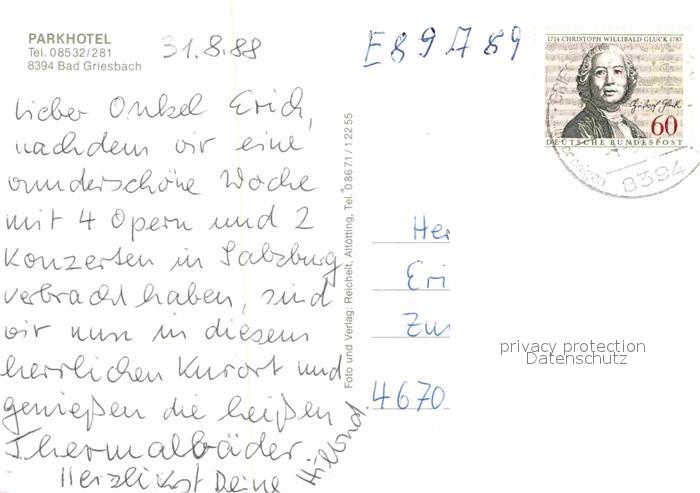 PARKHOTEL
Tel. 08532/281
8394 Bad Griesbach
31.8.88
E89A89
1714 CHRISTOPH WILLIBALD GLUCK 1787
60
DEUTSCHE BUNDESPOST
8394
Lieber Onkel Erich,
nachdem wir eine
wunderschöne Woche
mit 4 Opern und 2
Konzerten in Salzburg
verbracht haben, sind
wir nun in diesem
herrlichen Kurort und
genießen die heißen
Thermalbäder.
Herzlichst Deine
Foto und Verlag: Reichelt, Altötting, Tel. 08671/12255
Her
Eri
Zur
4670
privacy protection
Datenschutz